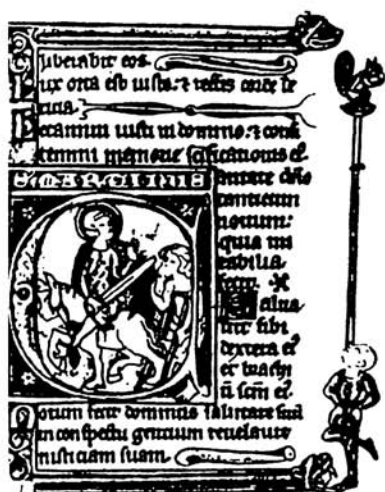 liberabit eos.
Lux orta est iusto: ⁊ rectis corde le
ticia.
Letamini iusti in domino: ⁊ confi
temini memorie sc̄ificationis eꝰ.
S MARTINUS
Cantate dn̄o
canticum
nouum:
quia mi
rabilia
fecit.
Salua
uit sibi
dextera eꝰ
et brachi
ū sc̄m eꝰ.
Notum fecit dominus salutare suū
in conspectu gentium reuelauit
iusticiam suam.